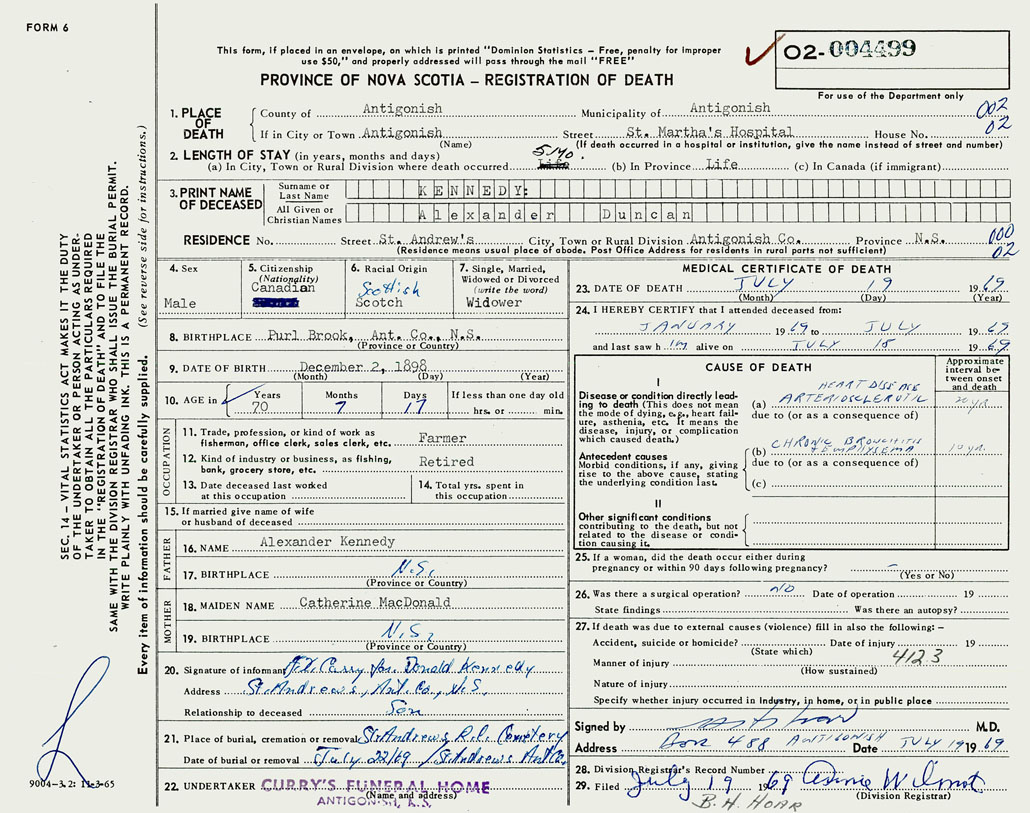 FORM 6
This form, if placed in an envelope, on which is printed "Dominion Statistics – Free, penalty for improper
use $50," and properly addressed will pass through the mail "FREE"
PROVINCE OF NOVA SCOTIA – REGISTRATION OF DEATH
02-004499
For use of the Department only
1. PLACE OF DEATH
County of Antigonish Municipality of Antigonish 002
If in City or Town Antigonish Street St. Martha's Hospital House No. 02
(Name) (If death occurred in a hospital or institution, give the name instead of street and number)
2. LENGTH OF STAY (in years, months and days) 5 mo.
(a) In City, Town or Rural Division where death occurred Life (b) In Province Life (c) In Canada (if immigrant)
3. PRINT NAME OF DECEASED
Surname or Last Name KENNEDY:
All Given or Christian Names Alexander Duncan
RESIDENCE No. Street St. Andrew's City, Town or Rural Division Antigonish Co. Province N.S. 000
(Residence means usual place of abode. Post Office Address for residents in rural parts not sufficient) 02
4. Sex
Male
5. Citizenship
(Nationality)
Canadian
6. Racial Origin
Scottish
Scotch
7. Single, Married,
Widowed or Divorced
(write the word)
Widower
8. BIRTHPLACE Purl Brook, Ant. Co., N.S.
(Province or Country)
9. DATE OF BIRTH December 2, 1898
(Month) (Day) (Year)
10. AGE in Years Months Days If less than one day old
70 7 17 hrs. or min.
OCCUPATION
11. Trade, profession, or kind of work as
fisherman, office clerk, sales clerk, etc. Farmer
12. Kind of industry or business, as fishing,
bank, grocery store, etc. Retired
13. Date deceased last worked
at this occupation
14. Total yrs. spent in
this occupation
15. If married give name of wife
or husband of deceased
FATHER
16. NAME Alexander Kennedy
17. BIRTHPLACE N.S.
(Province or Country)
MOTHER
18. MAIDEN NAME Catherine MacDonald
19. BIRTHPLACE N.S.
(Province or Country)
20. Signature of informant Curry for Donald Kennedy
Address St. Andrews, Ant. Co., N.S.
Relationship to deceased Son
21. Place of burial, cremation or removal St. Andrews R.C. Cemetery
Date of burial or removal July 22/69 / St. Andrews Ant. Co.
22. UNDERTAKER CURRY'S FUNERAL HOME
(Name and address)
ANTIGONISH, N.S.
MEDICAL CERTIFICATE OF DEATH
23. DATE OF DEATH JULY 19 1969
(Month) (Day) (Year)
24. I HEREBY CERTIFY that I attended deceased from:
JANUARY 1969 to JULY 1969
and last saw him alive on JULY 18 1969
CAUSE OF DEATH
Approximate
interval be-
tween onset
and death
I
Disease or condition directly lead-
ing to death (This does not mean
the mode of dying, e.g., heart fail-
ure, asthenia, etc. It means the
disease, injury, or complication
which caused death.)
HEART DISEASE
(a) ARTERIOSCLEROTIC 20 yr.
due to (or as a consequence of)
Antecedent causes
Morbid conditions, if any, giving
rise to the above cause, stating
the underlying condition last.
CHRONIC BRONCHITIS
(b) + EMPHYSEMA 10 yr.
due to (or as a consequence of)
(c)
II
Other significant conditions
contributing to the death, but not
related to the disease or condi-
tion causing it.
25. If a woman, did the death occur either during
pregnancy or within 90 days following pregnancy? –
(Yes or No)
26. Was there a surgical operation? NO Date of operation 19
State findings Was there an autopsy?
27. If death was due to external causes (violence) fill in also the following: –
Accident, suicide or homicide? Date of injury 19
(State which) 412.3
Manner of injury
(How sustained)
Nature of injury
Specify whether injury occurred in industry, in home, or in public place
Signed by M.D.
Address BOX 488 ANTIGONISH Date JULY 19 1969
28. Division Registrar's Record Number
29. Filed July 19 1969
(Division Registrar)
B. H. HOAR
SEC. 14 – VITAL STATISTICS ACT MAKES IT THE DUTY
OF THE UNDERTAKER OR PERSON ACTING AS UNDER-
TAKER TO OBTAIN ALL THE PARTICULARS REQUIRED
IN THE "REGISTRATION OF DEATH" AND TO FILE THE
SAME WITH THE DIVISION REGISTRAR WHO SHALL ISSUE THE BURIAL PERMIT.
WRITE PLAINLY WITH UNFADING INK. THIS IS A PERMANENT RECORD.
Every item of information should be carefully supplied. (See reverse side for instructions.)
9004-3.2: 11-3-65